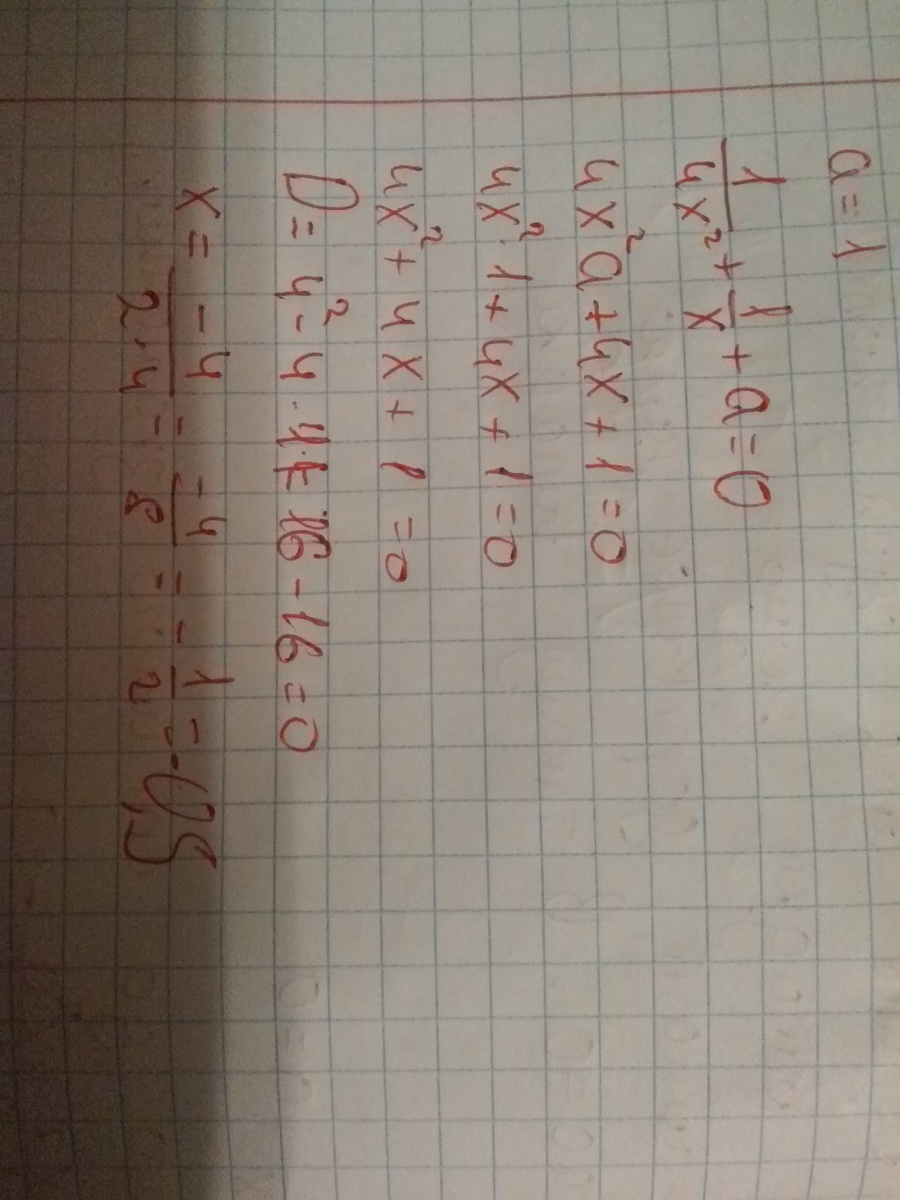 a = 1
1/4x² + 1/x + a = 0
4x²a + 4x + 1 = 0
4x²·1 + 4x + 1 = 0
4x² + 4x + 1 = 0
D = 4² - 4·4·1 = 16 - 16 = 0
x = -4/2·4 = -4/8 = -1/2 = -0,5